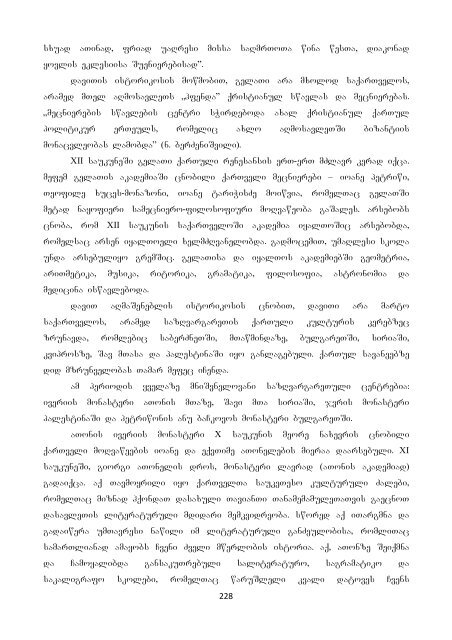 სხვად ათინად, ფრიად უაღრესი მისსა საღმრთოთა წინა წესთა, დიაკონად
ყოვლის ეკლესიისა შუენიერებისად”.
დავითის ისტორიკოსის მოწმობით, გელათი არა მხოლოდ საქართველოს,
არამედ მთელ აღმოსავლეთს „ჰფენდა” ქრისტიანულ სწავლას და მეცნიერებას.
„მეცნიერების სწავლების ცენტრი სჭირდებოდა ახალ ქრისტიანულ ქართულ
პოლიტიკურ ერთეულს, რომელიც ახლო აღმოსავლეთში ბიზანტიის
მონაცვლეობას ლამობდა” (ნ. ბერძენიშვილი).
XII საუკუნეში გელათი ქართული რენესანსის ერთ-ერთ მძლავრ კერად იქცა.
მეფემ გელათის აკადემიაში ცნობილი ქართველი მეცნიერები – იოანე პეტრიწი,
თეოფილე ხუცეს-მონაზონი, იოანე ტარიჭისძე მოიწვია, რომელთაც გელათში
მეტად ნაყოფიერი სამეცნიერო-ფილოსოფიური მოღვაწეობა გაშალეს. არსებობს
ცნობა, რომ XII საუკუნის საქართველოში აკადემია იყალთოშიც არსებობდა,
რომელსაც არსენ იყალთოელი ხელმძღვანელობდა. გადმოცემით, უმაღლესი სკოლა
უნდა არსებულიყო გრემშიც. გელათისა და იყალთოს აკადემიებში გეომეტრია,
არითმეტიკა, მუსიკა, რიტორიკა, გრამატიკა, ფილოსოფია, ასტრონომია და
მედიცინა ისწავლებოდა.
დავით აღმაშენებლის ისტორიკოსის ცნობით, დავითი არა მარტო
საქართველოს, არამედ საზღვარგარეთის ქართული კულტურის კერებზეც
ზრუნავდა, რომლებიც საბერძნეთში, მთაწმინდაზე, ბულგარეთში, სირიაში,
კვიპროსზე, შავ მთასა და პალესტინაში იყო განლაგებული. ქართულ სავანეებზე
დიდ მზრუნველობას თამარ მეფეც იჩენდა.
ამ პერიოდის ყველაზე მნიშვნელოვანი საზღვარგარეთული ცენტრებია:
ივერიის მონასტერი ათონის მთაზე, შავი მთა სირიაში, ჯვრის მონასტერი
პალესტინაში და პეტრიწონის ანუ ბაჩკოვოს მონასტერი ბულგარეთში.
ათონის ივერიის მონასტერი X საუკუნის მეორე ნახევრის ცნობილი
ქართველი მოღვაწეების იოანე და ექვთიმე ათონელების მიერაა დაარსებული. XI
საუკუნეში, გიორგი ათონელის დროს, მონასტერი ლავრად (ათონის აკადემიად)
გადაიქცა. აქ თავმოყრილი იყო ქართველთა საუკეთესო კულტურული ძალები,
რომელთაც მიზნად ჰქონდათ დასახული თავიანთი თანამემამულეთათვის გაეცნოთ
დასავლეთის ლიტერატურული მდიდარი მემკვიდრეობა. სწორედ აქ ითარგმნა და
გადაიწერა უმთავრესი ნაწილი იმ ლიტერატურული განძეულობისა, რომლითაც
სამართლიანად ამაყობს ჩვენი ძველი მწერლობის ისტორია. აქ, ათონზე შეიქმნა
და ჩამოყალიბდა განსაკუთრებული სალიტერატურო, საგრამატიკო და
საკალიგრაფო სკოლები, რომელთაც წარუშლელი კვალი დატოვეს ჩვენს
228